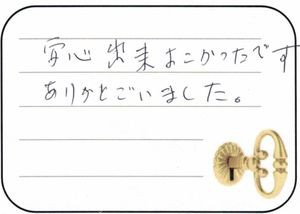 安心出来よかったです
ありがとございました。